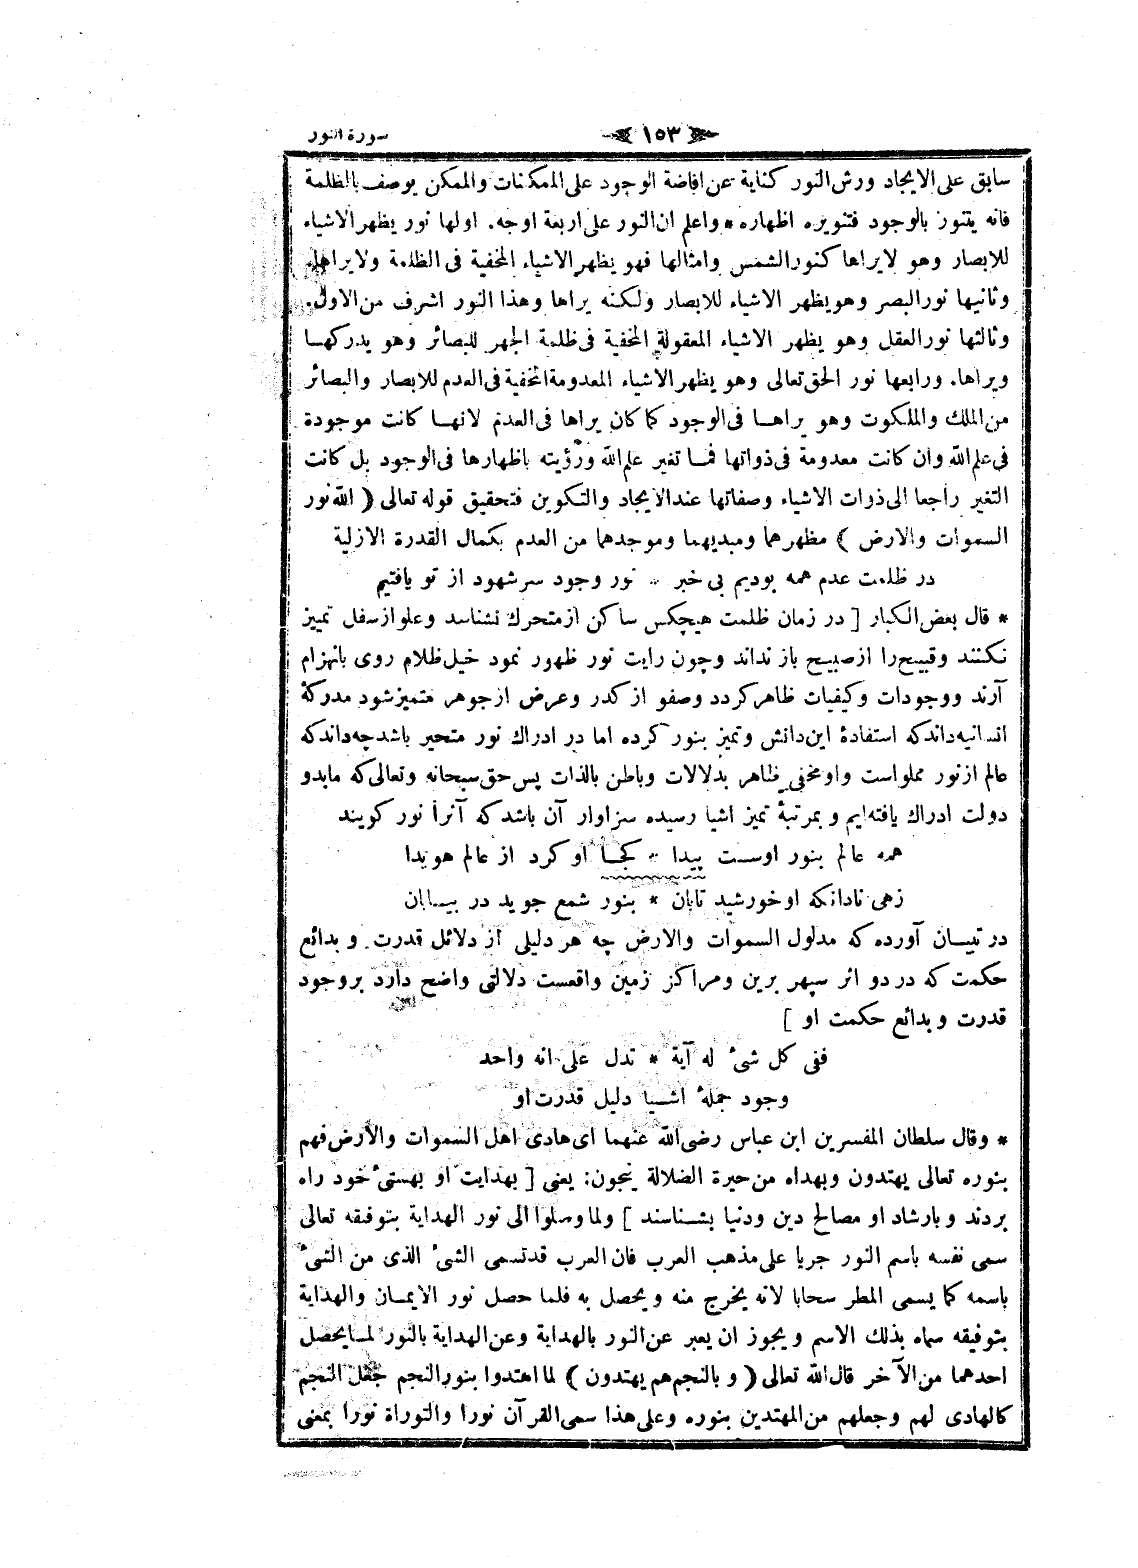 سورة النور
١٥٣
سابق على الايجاد ورش النور كناية عن افاضة الوجود على الممكنات والممكن يوصف بالظلمة
فانه يتنور بالوجود فتنويره اظهاره * واعلم ان النور على اربعة اوجه. اولها نور يظهر الاشياء
للابصار وهو لايراها كنور الشمس وامثالها فهو يظهر الاشياء المخفية فى الظلمة ولايراها.
وثانيها نور البصر وهو يظهر الاشياء للابصار ولكنه يراها وهذا النور اشرف من الاول.
وثالثها نور العقل وهو يظهر الاشياء المعقولة المخفية فى ظلمة الجهر للبصائر وهو يدركها
ويراها. ورابعها نور الحق تعالى وهو يظهر الاشياء المعدومة المخفية فى العدم للابصار والبصائر
من الملك والملكوت وهو يراها فى الوجود كما كان يراها فى العدم لانها كانت موجودة
فى علم الله وان كانت معدومة فى ذواتها فما تغير علم الله ورؤيته باظهارها فى الوجود بل كانت
التغير راجعا الى ذوات الاشياء وصفاتها عند الايجاد والتكوين فتحقيق قوله تعالى ( الله نور
السموات والارض ) مظهرهما ومبديهما وموجدهما من العدم بكمال القدرة الازلية
در ظلمت عدم همه بوديم بى خبر * نور وجود سر شهود از تو يافتيم
* قال بعض الكبار [ در زمان ظلمت هيچكس ساكن از متحرك نشناسد وعلو از سفل تمييز
نكنند وقبيح را از صبيح باز نداند وچون رايت نور ظهور نمود خيل ظلام روى بانهزام
آرند ووجودات وكيفيات ظاهر كردد وصفو از كدر وعرض از جوهر متميز شود مدركۀ
انسانيه داند كه استفادۀ اين دانش وتميز بنور كرده اما در ادراك نور متحير باشد چه داند كه
عالم از نور مملواست واو مخفى ظاهر بدلالات وباطن بالذات پس حق سبحانه وتعالى كه مابدو
دولت ادراك يافته ايم و بمرتبۀ تميز اشيا رسيده سزاوار آن باشد كه آنرا نور كويند
همه عالم بنور اوست پيدا * كجا او كرد از عالم هويدا
زهى نادانكه او خورشيد تابان * بنور شمع جويد در بيابان
در تبيان آورده كه مدلول السموات والارض چه هر دليلى از دلائل قدرت و بدائع
حكمت كه در دو اثر سپهر برين ومراكز زمين واقعست دلالتى واضح دارد بروجود
قدرت و بدائع حكمت او ]
ففى كل شئ له آية * تدل على انه واحد
وجود جملۀ اشيا دليل قدرت او
* وقال سلطان المفسرين ابن عباس رضى الله عنهما اى هادى اهل السموات والارض فهم
بنوره تعالى يهتدون وبهداه من حيرة الضلالة ينجون: يعنى [ بهدايت او بهستئ خود راه
بردند و بارشاد او مصالح دين ودنيا بشناسند ] ولما وصلوا الى نور الهداية بتوفيقه تعالى
سمى نفسه باسم النور جريا على مذهب العرب فان العرب قد تسمى الشئ الذى من الشئ
باسمه كما يسمى المطر سحابا لانه يخرج منه و يحصل به فلما حصل نور الايمان والهداية
بتوفيقه سماه بذلك الاسم و يجوز ان يعبر عن النور بالهداية وعن الهداية بالنور لما يحصل
احدهما من الآخر قال الله تعالى ( و بالنجم هم يهتدون ) لما اهتدوا بنور النجم جعل النجم
كالهادى لهم وجعلهم من المهتدين بنوره وعلى هذا سمى القرآن نورا والتوراة نورا بمعنى